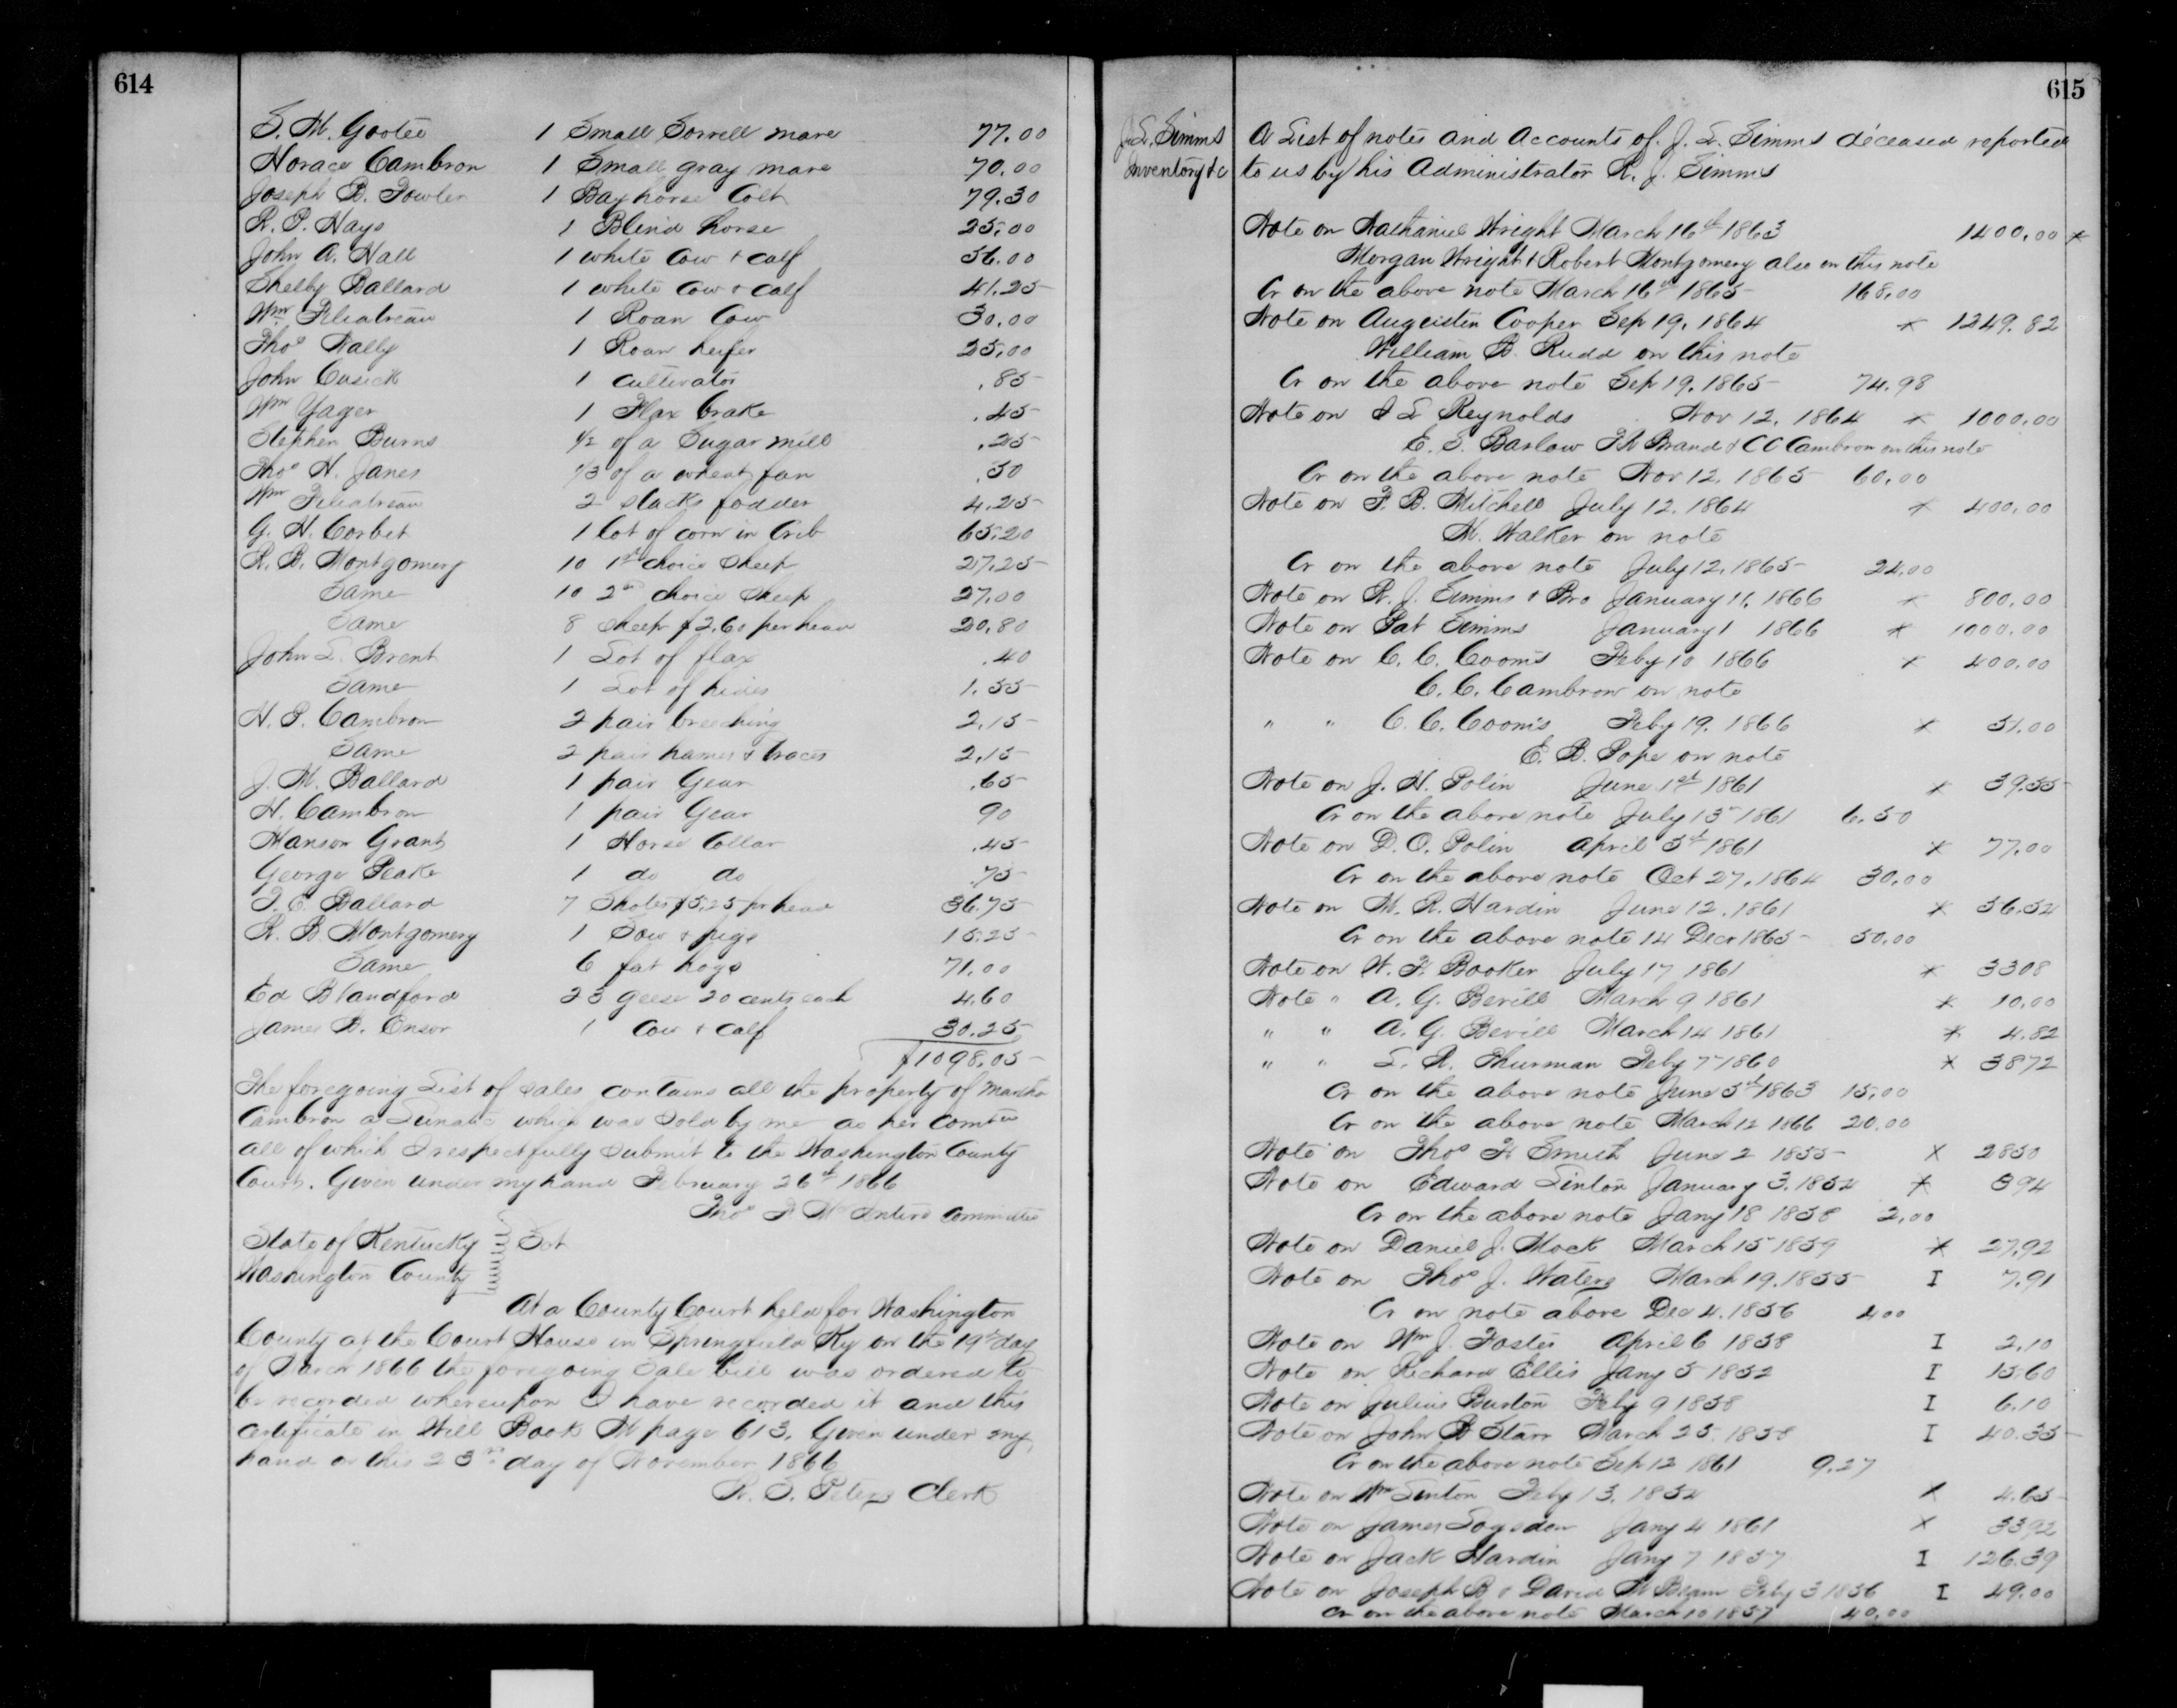 614
S. M. Gootee 1 Small Sorrell mare 77.00
Horace Cambron 1 Small gray mare 70.00
Joseph B. Fowler 1 Bay horse Colt 79.30
R. P. Hays 1 Blind horse 25.00
John A. Hall 1 white Cow & calf 36.00
Shelby Ballard 1 white Cow & calf 41.25
Wm Filiatreau 1 Roan Cow 30.00
Thos Wally 1 Roan heifer 25.00
John Cusick 1 Cultivator .85
Wm Yager 1 Flax brake .45
Stephen Burns 1/2 of a Sugar mill .25
Thos H. Janes 1/3 of a wheat fan .50
Wm Filiatreau 2 stacks fodder 4.25
G. H. Corbet 1 lot of corn in Crib 65.20
R. B. Montgomery 10 1st choice Sheep 27.25
Same 10 2nd choice Sheep 27.00
Same 8 Sheep $2.60 per head 20.80
John S. Brent 1 Lot of flax .40
Same 1 Lot of hides 1.55
H. P. Cambron 2 pair breeching 2.15
Same 2 pair hames & traces 2.15
J. M. Ballard 1 pair Gear .65
H. Cambron 1 pair Gear 90
Hanson Grant 1 Horse Collar .45
George Peake 1 do do .75
T. C. Ballard 7 Shotes $5.25 pr head 36.75
R. B. Montgomery 1 Sow & pigs 15.25
Same 6 fat hogs 71.00
Ed Blandford 23 geese 20 cents each 4.60
James B. Ensor 1 Cow & calf 30.25
$1098.05
The foregoing List of sales contains all the property of Martha
Cambron a Lunatic which was Sold by me as her Comtee
all of which I respectfully Submit to the Washington County
Court. Given under my hand February 26th 1866
Thos F. McIntire Committee
State of Kentucky Sct
Washington County
At a County Court held for Washington
County at the Court House in Springfield Ky on the 19th day
of March 1866 the foregoing Sale bill was ordered to
be recorded whereupon I have recorded it and this
certificate in Will Book M page 613. Given under my
hand on this 23rd day of November 1866
W. S. Peters Clerk
615
J. L. Simms
Inventory &c
A List of notes and Accounts of J. L. Simms deceased reported
to us by his Administrator R. J. Simms
Note on Nathaniel Wright March 16th 1863 1400.00 *
Morgan Wright & Robert Montgomery also on this note
Cr on the above note March 16th 1865 168.00
Note on Augeistin Cooper Sep 19, 1864 * 1249.82
William B. Rudd on this note
Cr on the above note Sep 19. 1865 74.98
Note on J L Reynolds Nov 12, 1864 * 1000.00
E. S. Barlow Brand & C C Cambron on this note
Cr on the above note Nov 12, 1865 60.00
Note on F. B. Mitchell July 12. 1864 * 400.00
M. Walker on note
Cr on the above note July 12. 1865 24.00
Note on R. J. Simms & Bro January 11, 1866 * 800.00
Note on Pat Simms January 1 1866 * 1000.00
Note on C. C. Cooms Feby 10 1866 * 400.00
C. C. Cambron on note
" " C. C. Cooms Feby 19. 1866 * 51.00
E. B. Pope on note
Note on J. H. Polin June 1st 1861 * 39.55
Cr on the above note July 15 1861 6.50
Note on D. O. Polin April 3d 1861 * 77.00
Cr on the above note Oct 27. 1864 30.00
Note on M. R. Hardin June 12. 1861 * 56.54
Cr on the above note 14 Decr 1865 50.00
Note on W. F. Booker July 17 1861 * 3308
Note " A. G. Bevill March 9 1861 * 10.00
" " A. G. Bevill March 14 1861 * 4.82
" " L. R. Thurman Feby 7 1860 * 3872
Cr on the above note June 3d 1863 15.00
Cr on the above note March 12 1866 20.00
Note on Thos F. Smith June 2 1855 X 2850
Note on Edward Linton January 3. 1854 * 394
Cr on the above note Jany 18 1858 2.00
Note on Daniel J. Mock March 15 1859 * 27.92
Note on Thos J. Waters March 19. 1855 I 7.91
Cr on note above Dec 4. 1856 400
Note on Wm J. Foster April 6 1858 I 2.10
Note on Richard Ellis Jany 5 1852 I 15.60
Note on Julius Burton Feby 9 1858 I 6.10
Note on John B Starr March 25. 1858 I 40.35
Cr on the above note Sep 12 1861 9.27
Note on Wm Linton Feby 13. 1854 X 4.65
Note on James Logsdon Jany 4 1861 X 3392
Note on Jack Hardin Jany 7 1857 I 126.39
Note on Joseph B & David M Beam Feby 3 1856 I 49.00
Cr on the above note March 10 1857 40.00